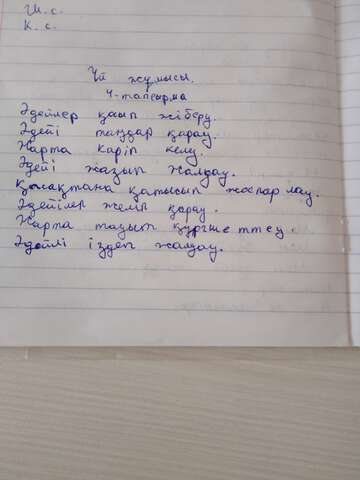 Ш. с.
К. с.
Үй жұмысы.
4-тапсырма
Әдейлер қаып жіберу.
Әдейі таңдар қарау.
Жарта кәріп келу.
Әдейі жазып жалғау.
қатысып жоспарлау.
Әдейілеп желіп қарау.
Жарта тазып
Әдейлі іздеп жалғау.